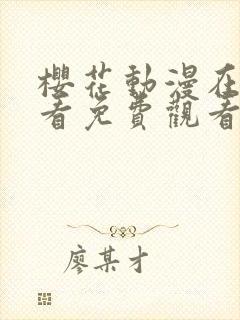 櫻花動漫在
看免費觀看
廖某才